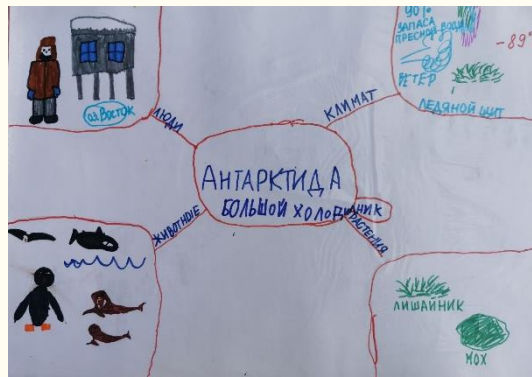 оз. Восток
ЛЮДИ
КЛИМАТ
90%
ЗАПАСА
ПРЕСНОЙ ВОДЫ
-89°
ВЕТЕР
ЛЕДЯНОЙ ЩИТ
АНТАРКТИДА
БОЛЬШОЙ ХОЛОДИЛЬНИК
ЖИВОТНЫЕ
РАСТЕНИЯ
ЛИШАЙНИК
МОХ